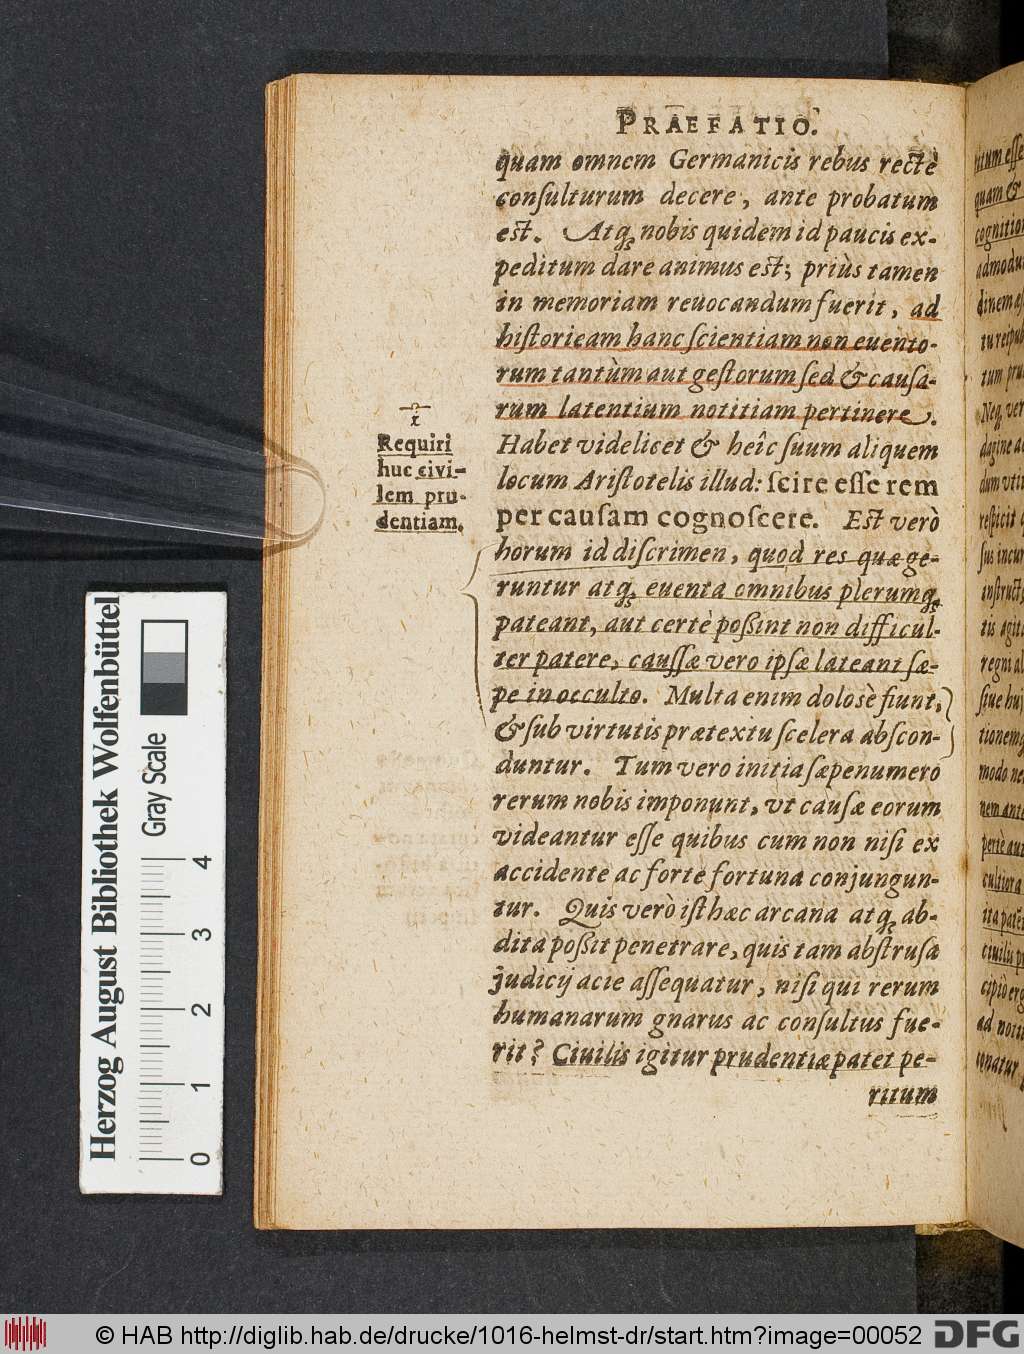 PRAEFATIO.
quam omnem Germanicis rebus rectè
conſulturum decere, ante probatum
est. Atq; nobis quidem id paucis ex-
peditum dare animus est; priùs tamen
in memoriam reuocandum fuerit, ad
hiſtoricam hanc ſcientiam non euento-
rum tantùm aut geſtorum ſed & cauſa-
rum latentium notitiam pertinere.
Habet videlicet & heîc ſuum aliquem
locum Ariſtotelis illud: ſcire eſſe rem
per cauſam cognoſcere. Est verò
horum id diſcrimen, quod res quæ ge-
runtur atq; euenta omnibus plerumq;
pateant, aut certè poßint non difficul-
ter patere, cauſſæ vero ipſæ lateant ſæ-
pe in occulto. Multa enim dolosè fiunt,
& ſub virtutis prætextu ſcelera abſcon-
duntur. Tum vero initia ſæpenumero
rerum nobis imponunt, vt cauſæ eorum
videantur eſſe quibus cum non niſi ex
accidente ac forte fortuna conjungun-
tur. Quis verò iſthæc arcana atq; ab-
dita poßit penetrare, quis tam abſtruſa
judicij acie aſſequatur, niſi qui rerum
humanarum gnarus ac conſultus fue-
rit? Ciuilis igitur prudentiæ patet pe-
ritum
1
Requiri
huc civi-
lem pru-
dentiam.
Herzog August Bibliothek Wolfenbüttel
Gray Scale
0 1 2 3 4
© HAB http://diglib.hab.de/drucke/1016-helmst-dr/start.htm?image=00052
DFG